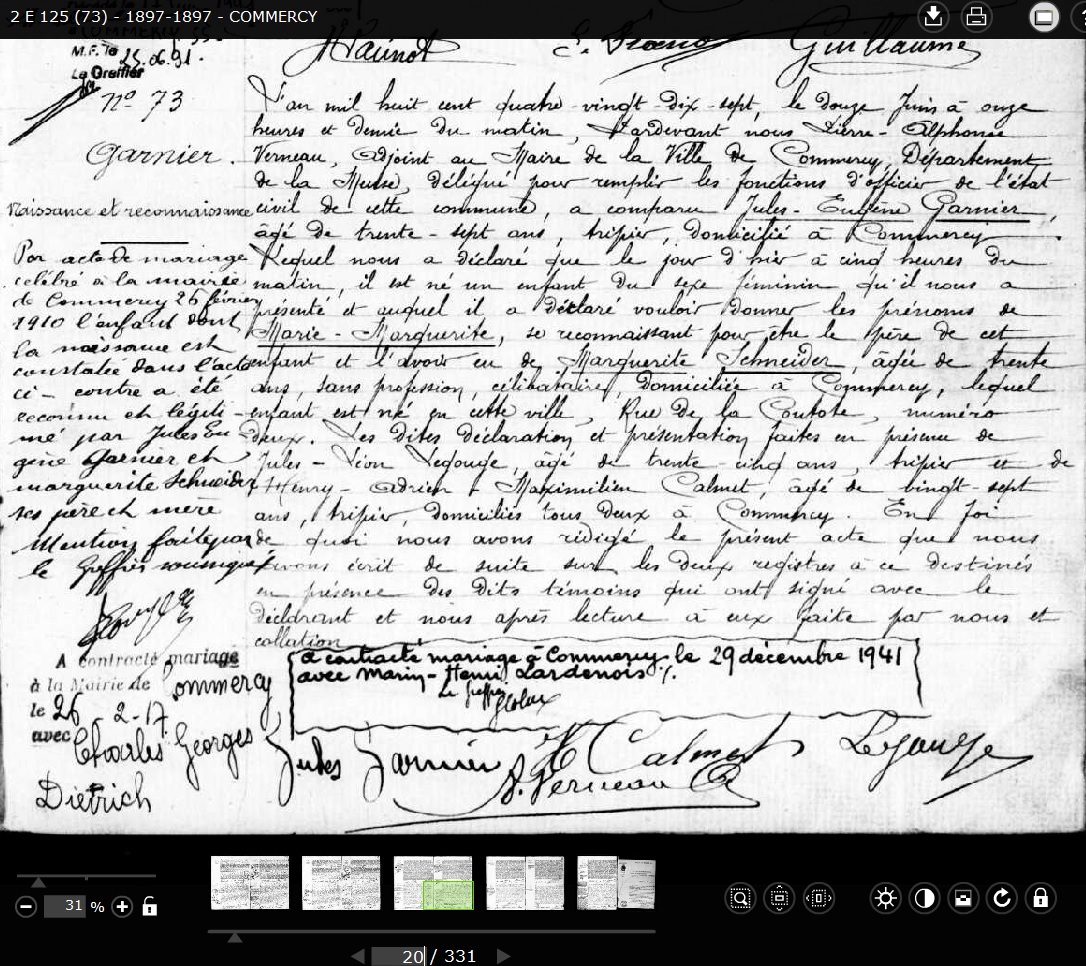 2 E 125 (73) - 1897-1897 - COMMERCY
M.F. le 25.6.91.
Le Greffier
Guillaume
nº 73
Garnier.
Naissance et reconnaissance
Por acte de mariage
célébré à la mairie
de Commercy 26 février
1910 l'enfant dont
la naissance est
constatée dans l'acte
ci-contre a été
reconnu et légiti-
mé par Jules Eu
gène Garnier et
marguerite Schneider
ses père et mère
Mention faite par
le Greffier soussigné
A contracté mariage
à la Mairie de Commercy
le 26 2-17
avec Charles Georges
Dietrich
L'an mil huit cent quatre-vingt-dix-sept, le douze Juin à onze
heures et demie du matin, Pardevant nous Pierre-Alphonse
Verneau, Adjoint au Maire de la Ville de Commercy, Département
de la Meuse, délégué pour remplir les fonctions d'officier de l'état
civil de cette commune, a comparu Jules-Eugène Garnier,
âgé de trente-sept ans, tripier, domicilié à Commercy.
Lequel nous a déclaré que le jour d'hier à cinq heures du
matin, il est né un enfant du sexe féminin qu'il nous a
présenté et auquel il a déclaré vouloir donner les prénoms de
Marie-Marguerite, se reconnaissant pour être le père de cet
enfant et l'avoir eu de Marguerite Schneider, âgée de trente
ans, sans profession, célibataire, domiciliée à Commercy, lequel
enfant est né en cette ville, Rue de la Coutote, numéro
deux. Les dites déclaration et présentation faites en présence de
Jules-Léon Legouge, âgé de trente-cinq ans, tripier et de
Henry-Adrien Maximilien Calmet, âgé de vingt-sept
ans, tripier, domiciliés tous deux à Commercy. En foi
de quoi nous avons rédigé le présent acte que nous
avons écrit de suite sur les deux registres à ce destinés
en présence des dits témoins qui ont signé avec le
déclarant et nous après lecture à eux faite par nous et
collation
a contracté mariage à Commercy, le 29 décembre 1941
avec Marin-Henri Lardenois %.
Le greffier
Jules Garnier H Calmet Legouge
A. Verneau
31 %
20 / 331